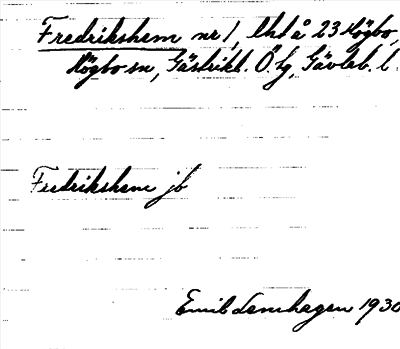 Fredrikshem nr 1, lht å 23 Högbo,
Högbo sn, Gästrikl. Ö tg, Gävleb. l.
Fredrikshem jb
Emil Lennhagen 1930